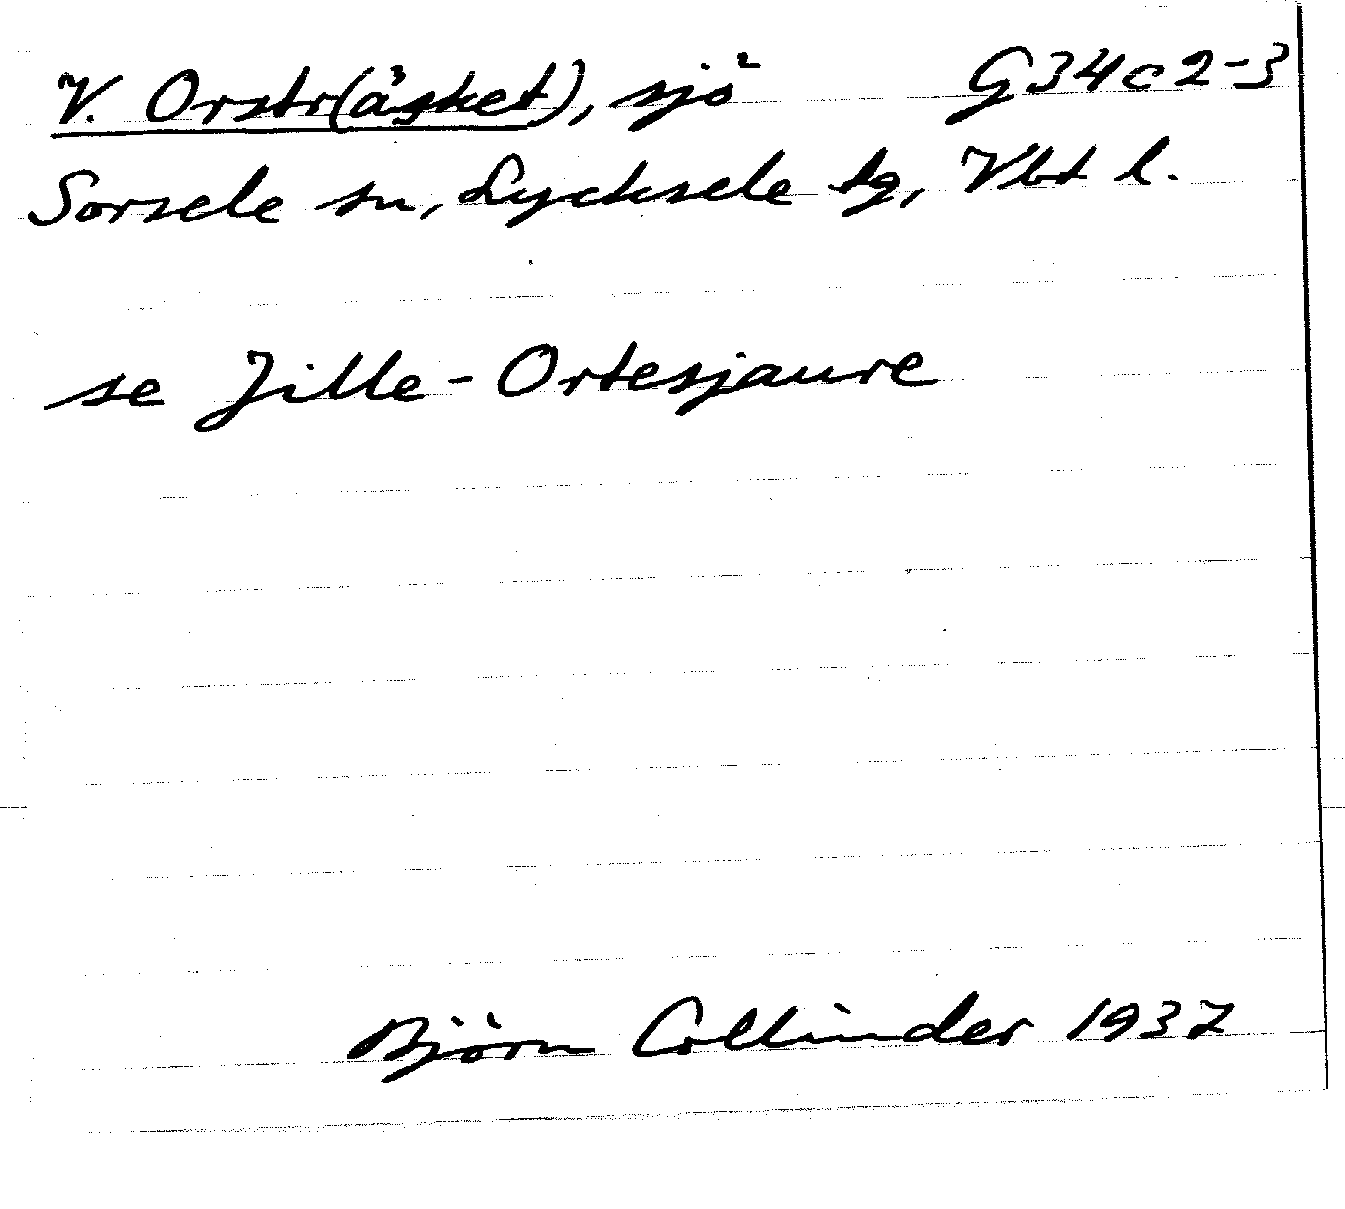 V. Orstr(äsket), sjö G34c2-3
Sorsele sn, Lycksele tg, Vbt l.
se Jille-Ortesjaure
Björn Collinder 1937